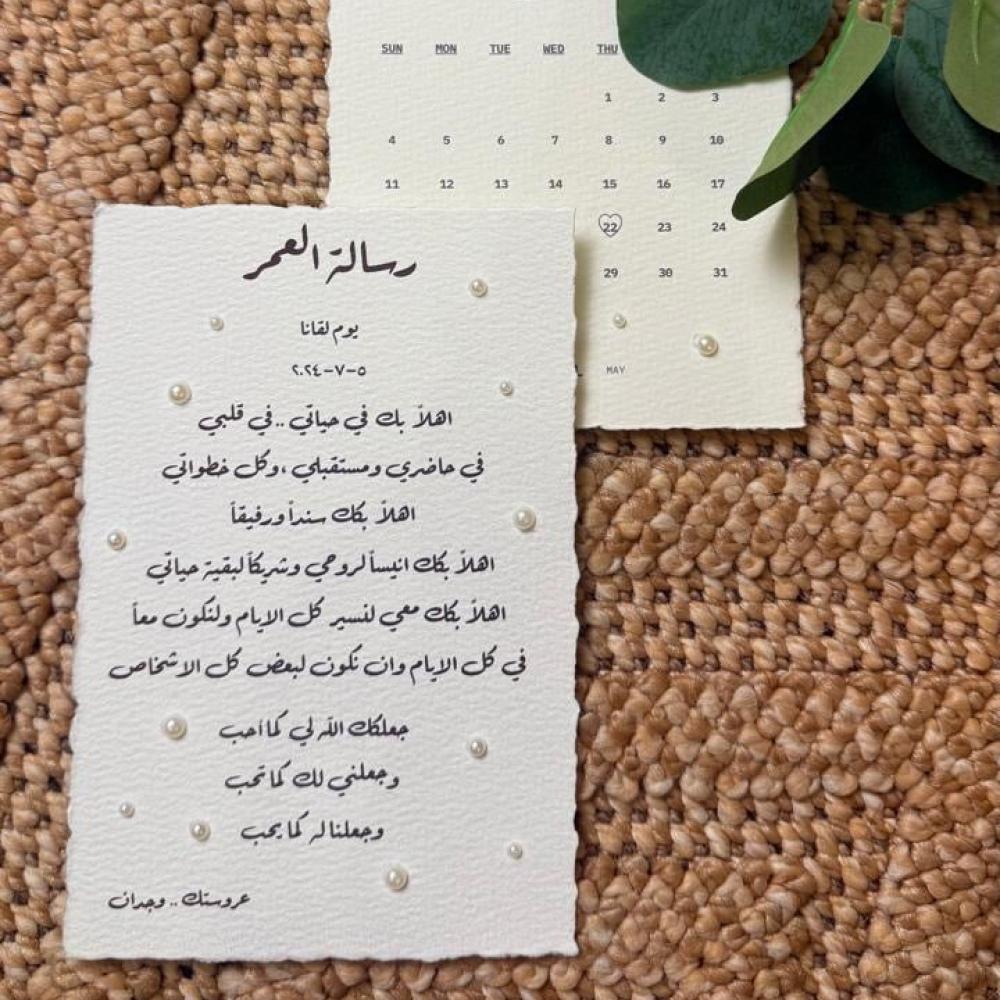 SUN MON TUE WED THU
1 2 3
4 5 6 7 8 9 10
11 12 13 14 15 16 17
22 23 24
29 30 31
MAY
رسالة العمر
يوم لقانا
٥-٧-٢٠٢٤
اهلاً بك في حياتي .. في قلبي
في حاضري ومستقبلي ،وكل خطواتي
اهلاً بكك سنداً ورفيقاً
اهلاً بكك انيساً لروحي وشريكاً لبقية حياتي
اهلاً بكك معي لنسير كل الايام ولنكون معاً
في كل الايام وان نكون لبعض كل الاشخاص
جعلكك الله لي كما أحب
وجعلني لك كما تحب
وجعلنا له كما يحب
عروستك .. وجدان